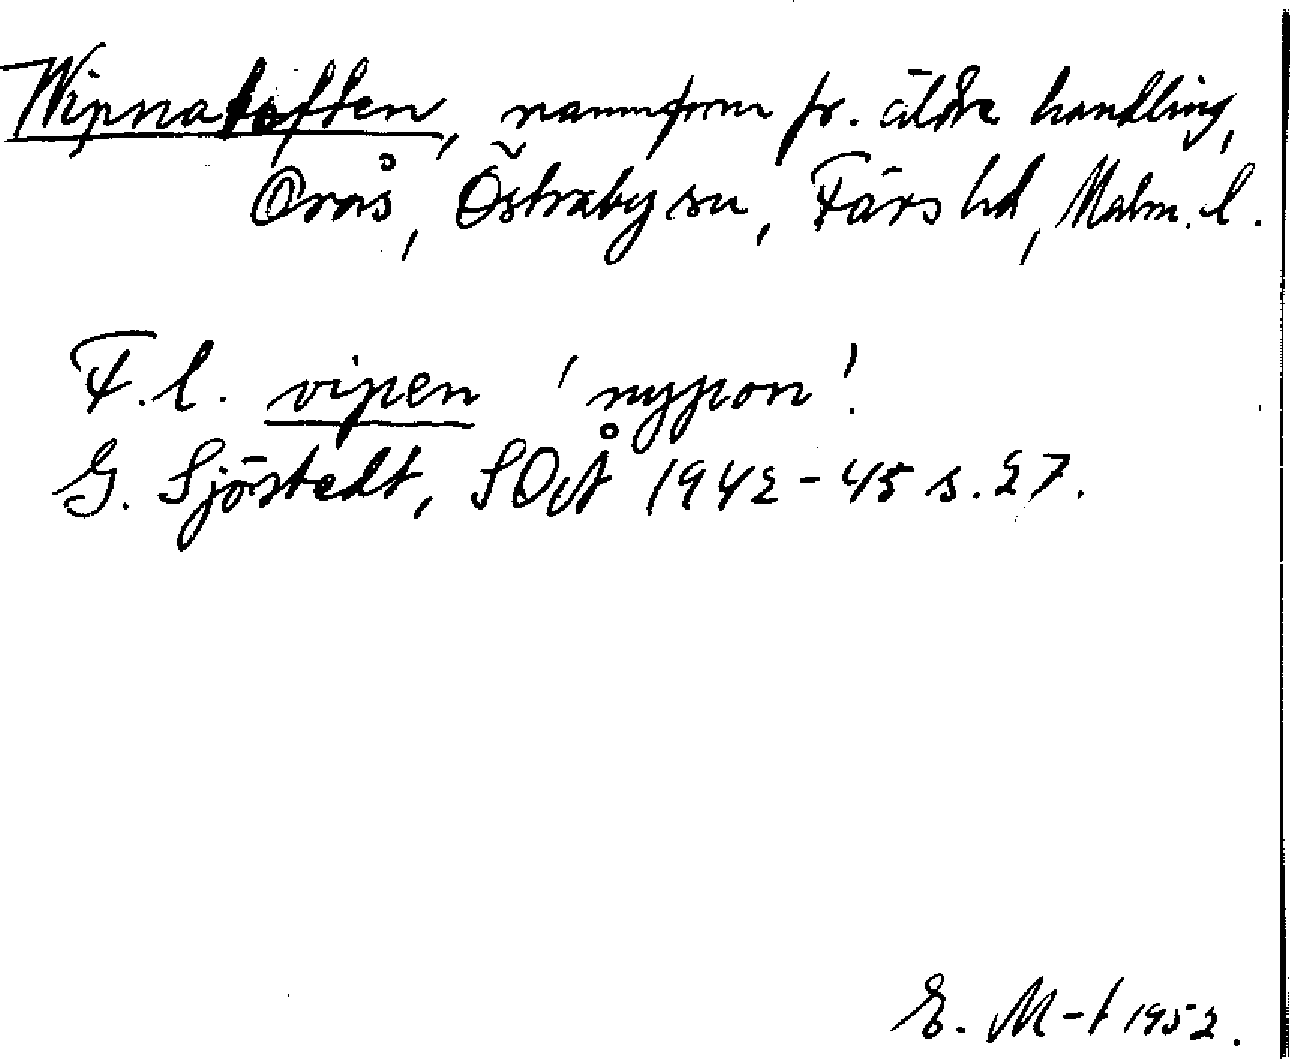 Wipnatoften, namnform fr. äldre handling,
Orås, Östraby sn, Färs hd, Malm. l.
F. l. vipen 'nypon'.
G. Sjöstedt, SOÅ 1942-45 s. 27.
E. M-t 1952.